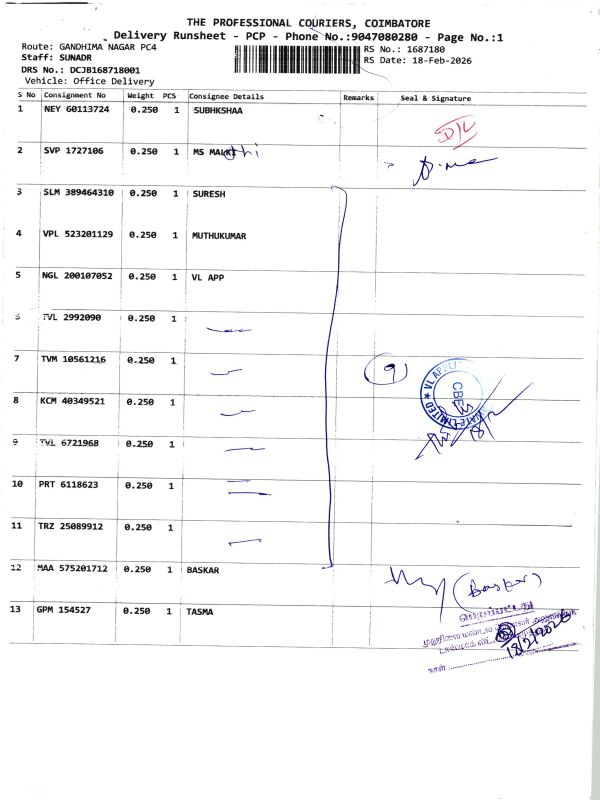 THE PROFESSIONAL COURIERS, COIMBATORE
Delivery Runsheet - PCP - Phone No.:9047080280 - Page No.:1
Route: GANDHIMA NAGAR PC4
RS No.: 1687180
Staff: SUNADR
RS Date: 18-Feb-2026
DRS No.: DCJB168718001
Vehicle: Office Delivery
S No Consignment No Weight PCS Consignee Details Remarks Seal & Signature
1 NEY 60113724 0.250 1 SUBHKSHAA
D/L
2 SVP 1727106 0.250 1 MS MALKI thi
3 SLM 389464310 0.250 1 SURESH
4 VPL 523201129 0.250 1 MUTHUKUMAR
5 NGL 200107052 0.250 1 VL APP
6 TVL 2992090 0.250 1
7 TVM 10561216 0.250 1
9
VL APPLI
CBE
LIMITED
8 KCM 40349521 0.250 1
9 TVL 6721968 0.250 1
10 PRT 6118623 0.250 1
11 TRZ 25089912 0.250 1
12 MAA 575201712 0.250 1 BASKAR
(Baskar)
13 GPM 154527 0.250 1 TASMA
18/2/2026
நாள்